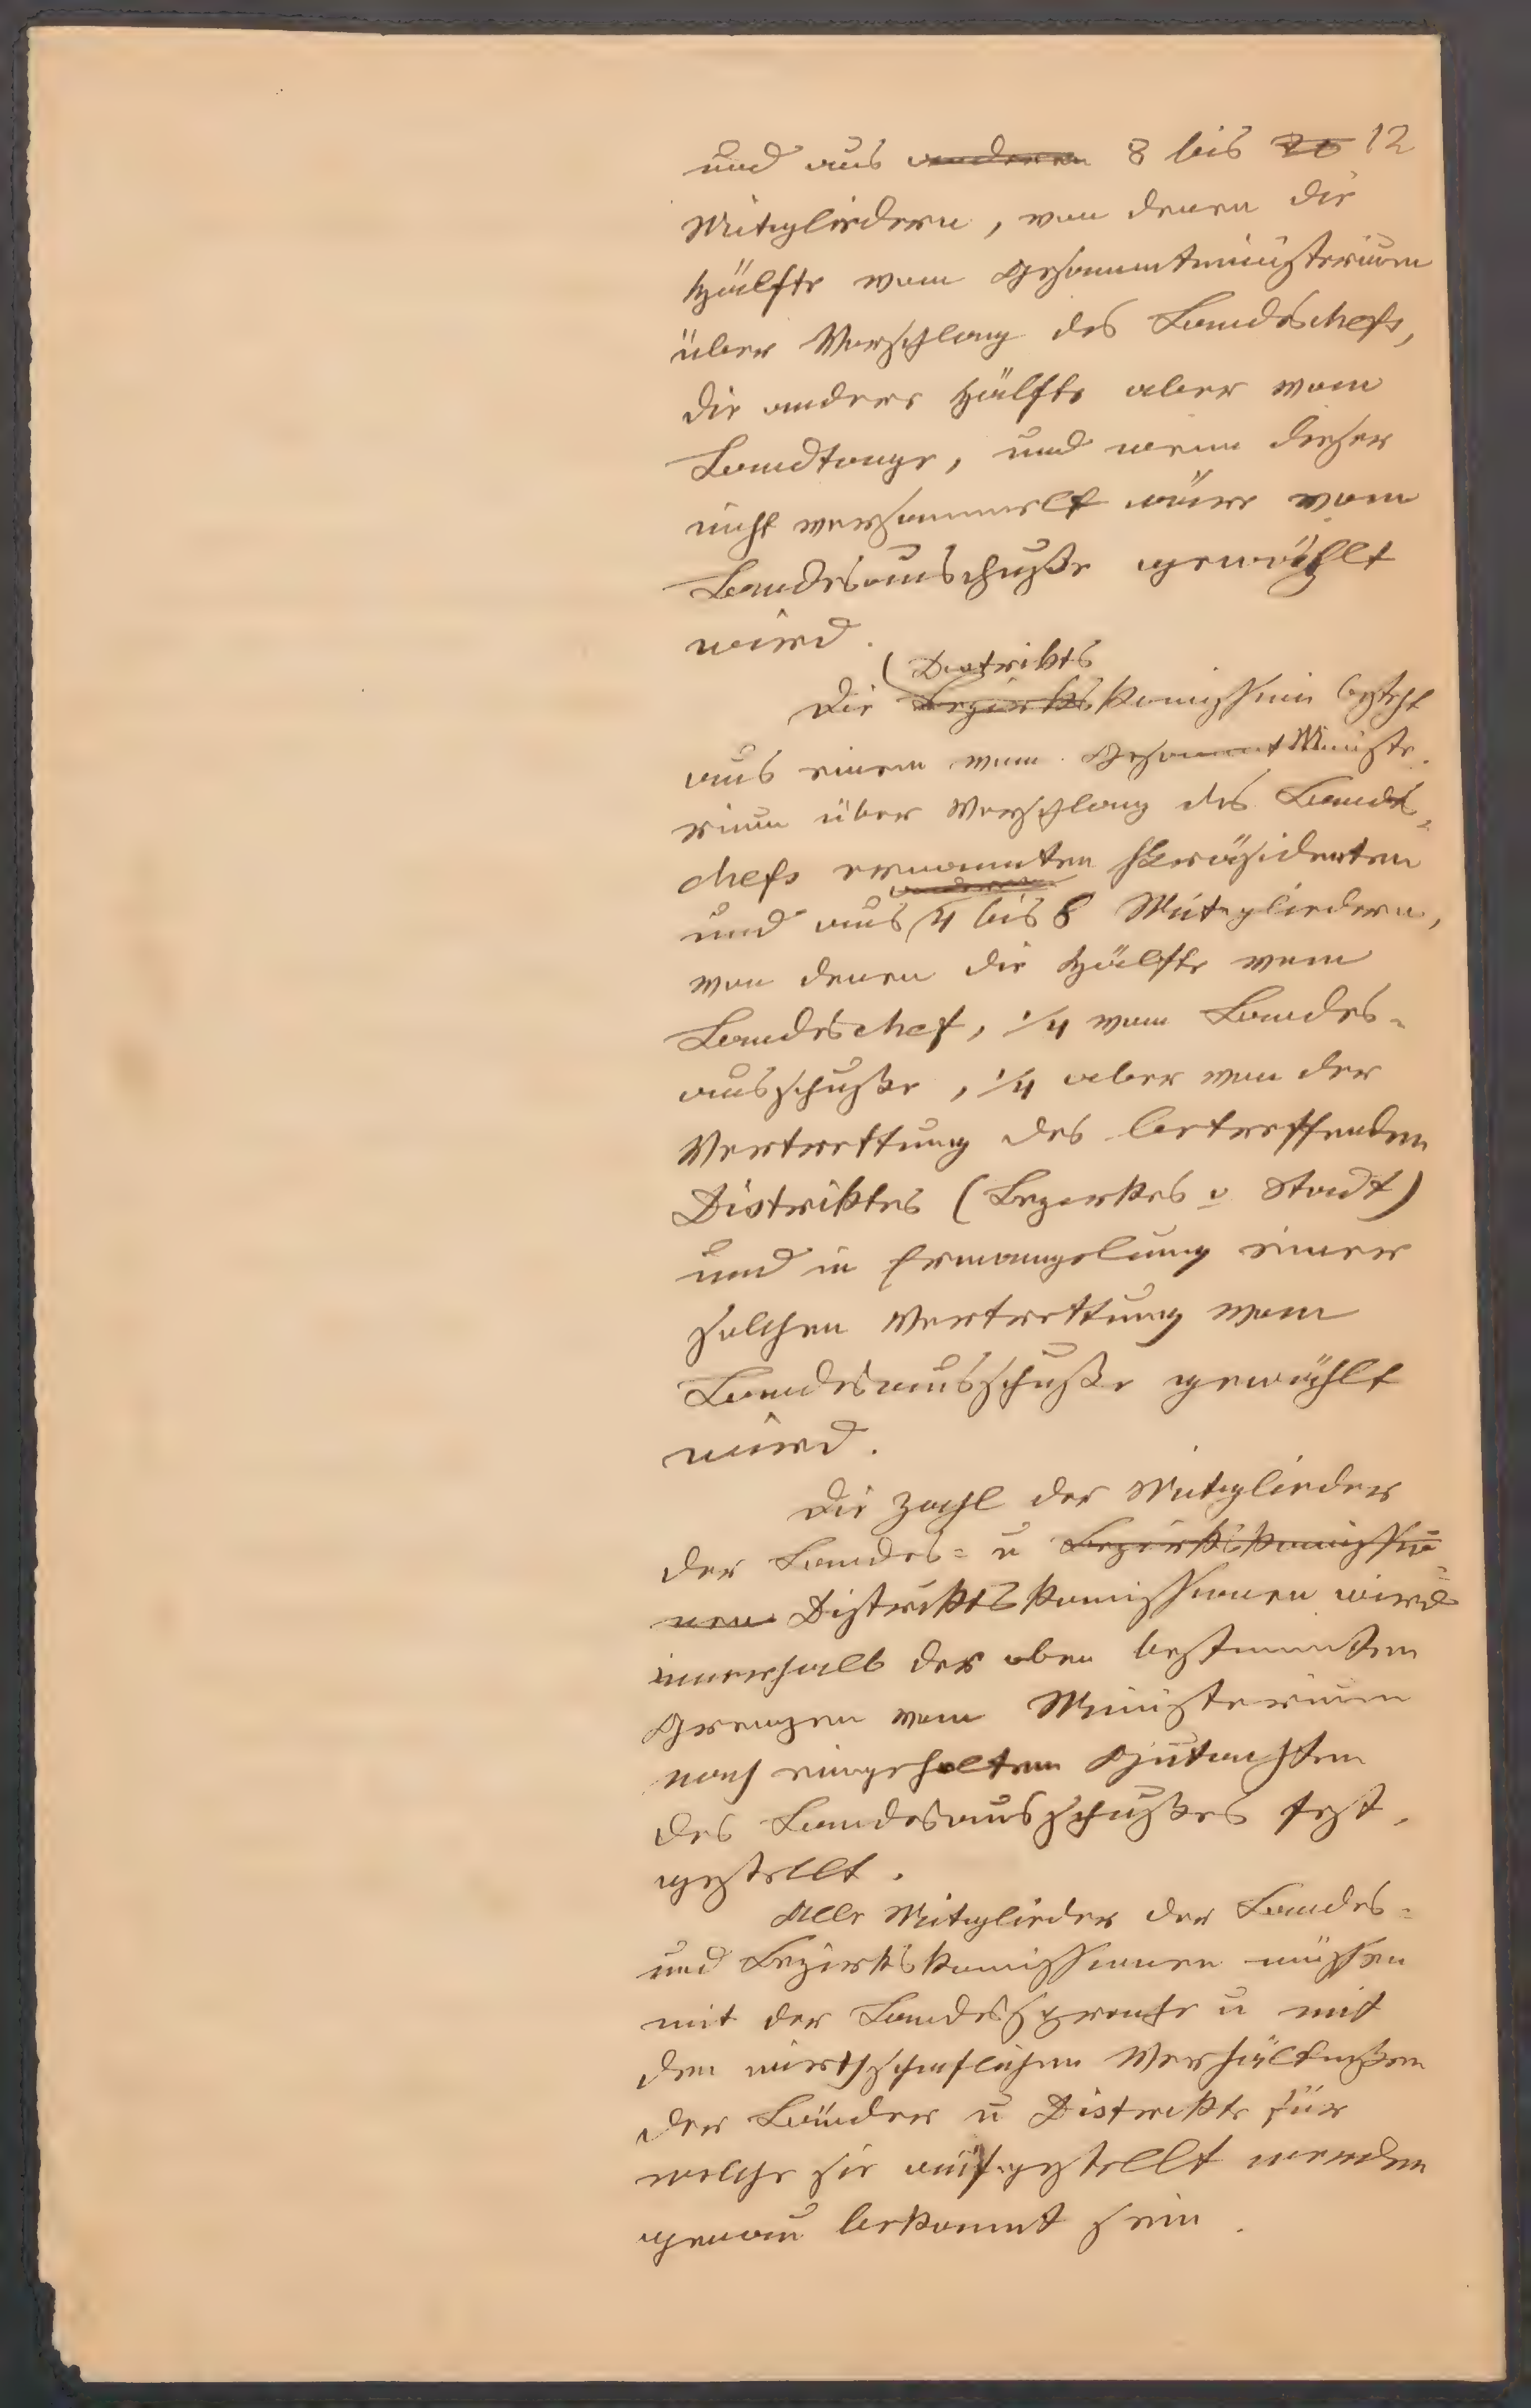 und aus anderen 8 bis 20 12
Mitgliedern, von denen die
Hälfte vom Gesammtministerium
über Vorschlag des Landeschefs,
die andere Hälfte aber vom
Landtage, und wenn dieser
nicht versammelt wäre vom
Landesausschuße gewählt
wird.
Distrikts
Die Bezirkskomission besteht
aus einem vom Gesammt Ministe-
rium über Vorschlag des Landes-
chefs ernannten Präsidenten
anderen
und aus 4 bis 8 Mitgliedern,
von denen die Hälfte vom
Landeschef, 1/4 vom Landes-
ausschuße, 1/4 aber von der
Vertrettung des betreffenden
Distriktes (Bezirkes u Stadt)
und in Ermangelung einer
solchen Vertrettung vom
Landesausschuße gewählt
wird.
Die Zahl der Mitglieder
der Landes- u Bezirkskomissio-
nen Distriktskomissionen wird
innerhalb der oben bestimmten
Grenzen vom Ministerium
nach eingeholtem Gutachten
des Landesausschußes fest-
gestellt.
Alle Mitglieder der Landes-
und Bezirkskomissionen müssen
mit der Landessprache u mit
den wirthschaftlichen Verhältnißen
der Länder u Distrikte für
welche sie aufgestellt werden
genau bekannt sein.